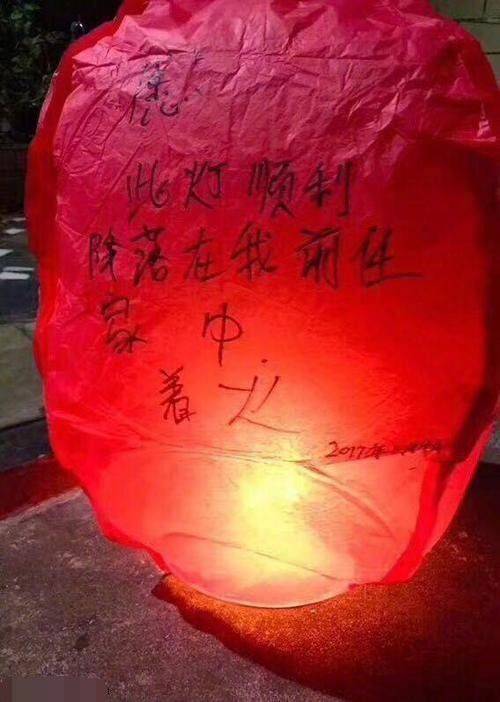 此灯顺利
降落在我前任
家中.
着火
2017年